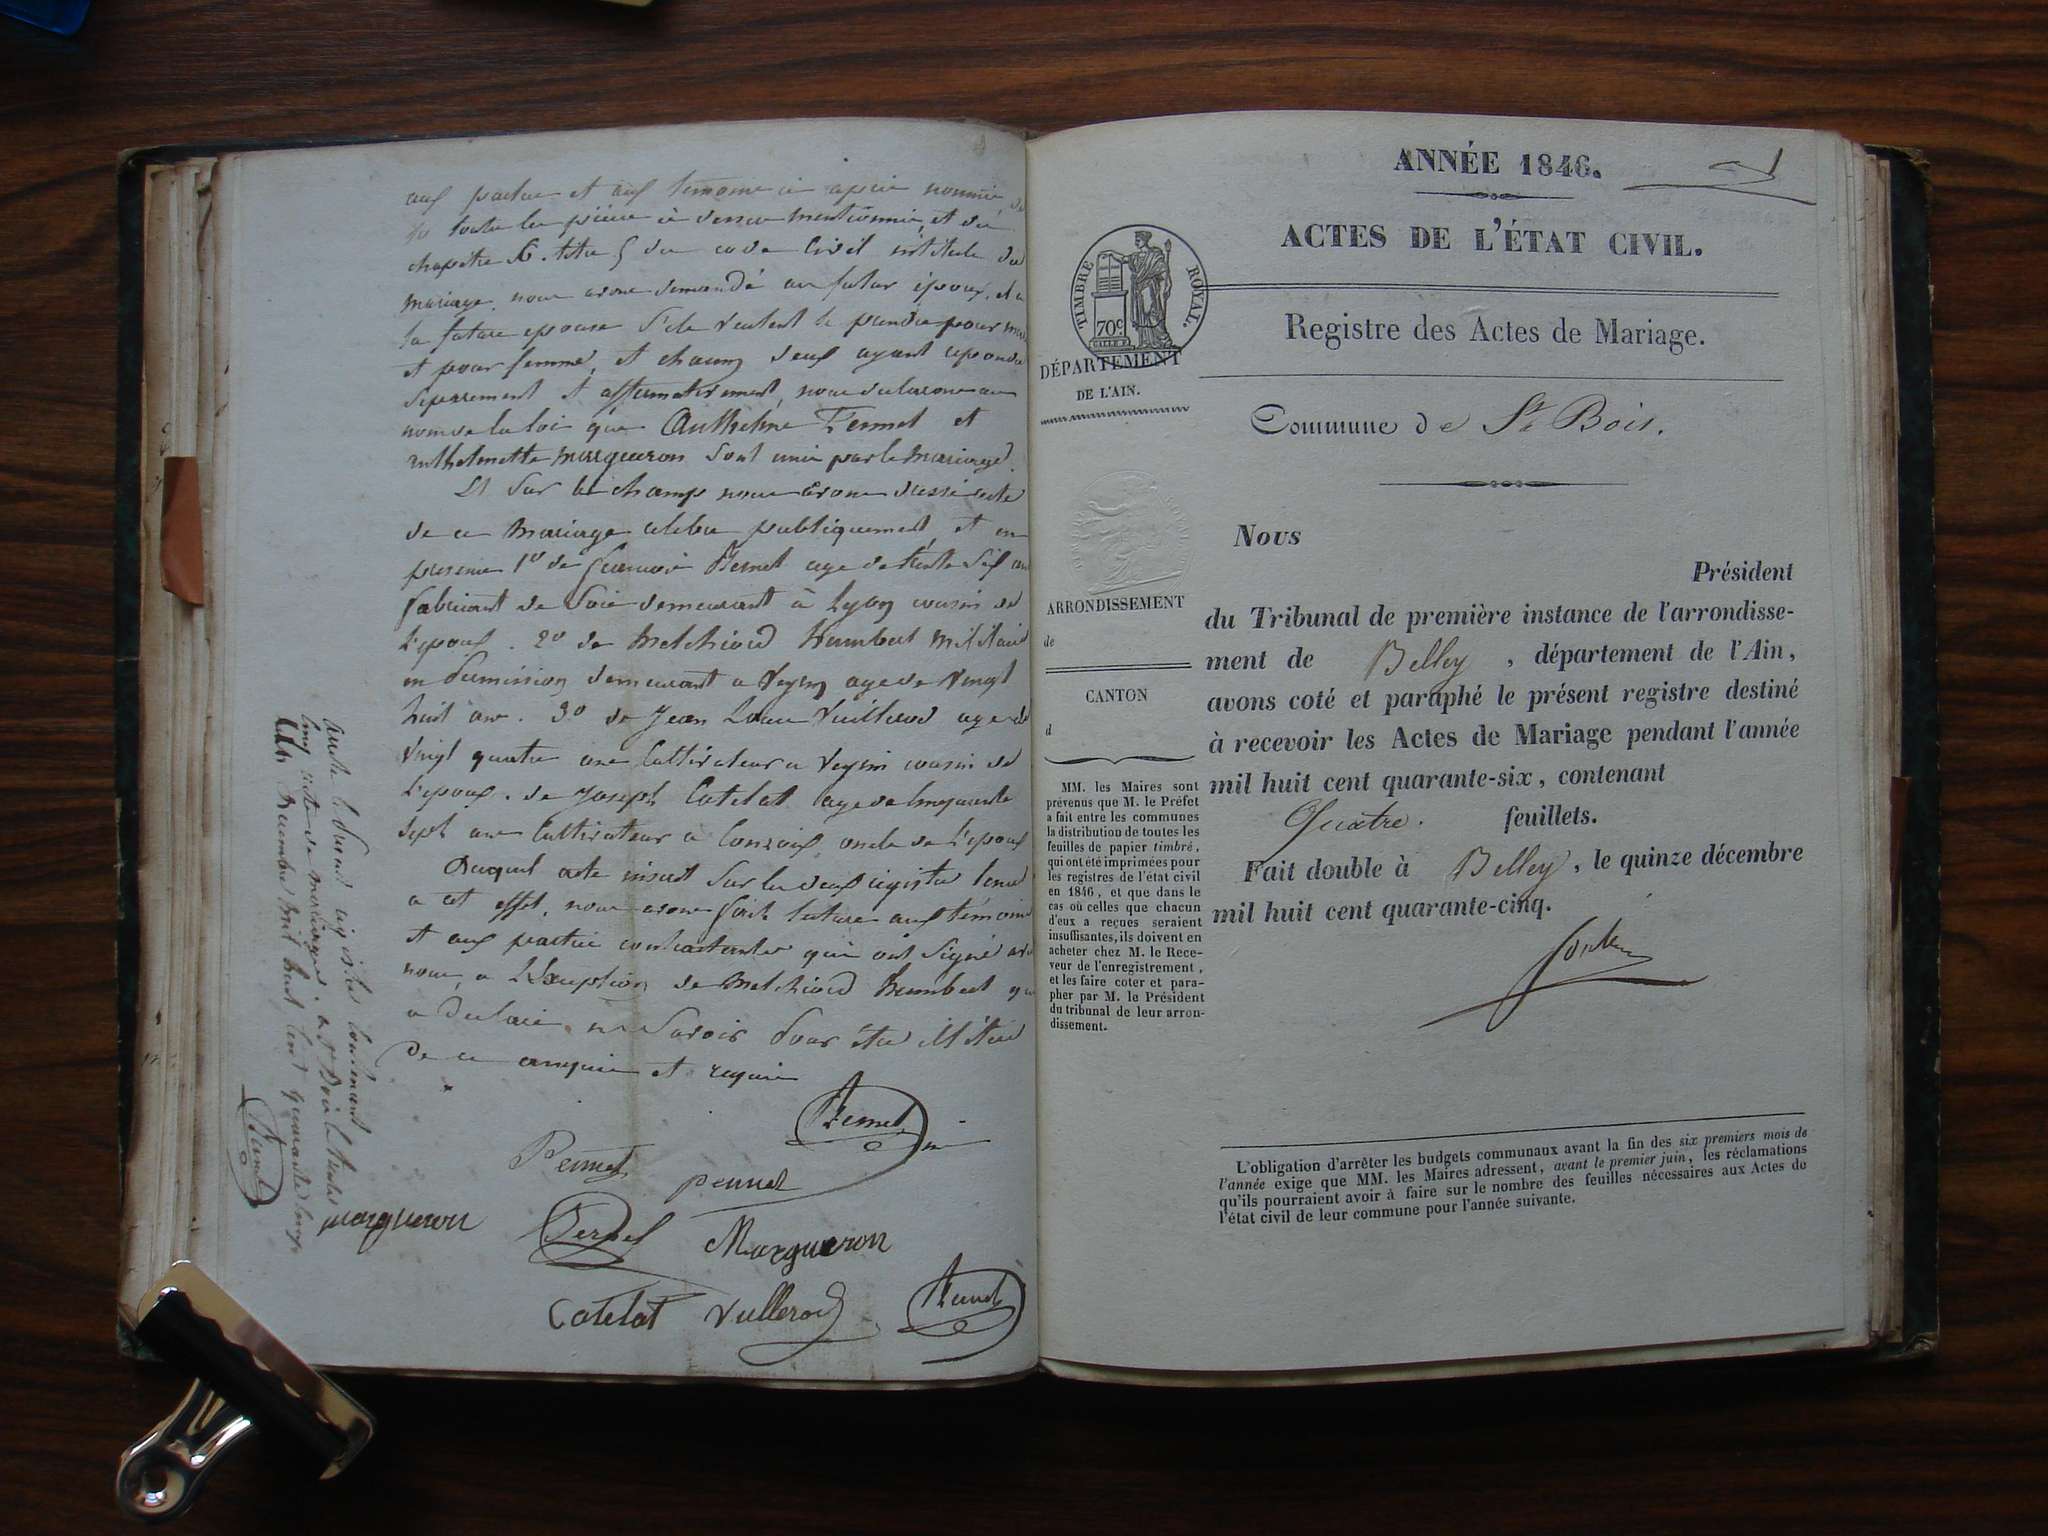 aux partie et aux temoins ci apris nommés de
toute les piéces ci dessus mentionnie, et du
chapitre 6. titre 5 du code Civil intitule du
mariage, nous avons demandé au futur époux, et a
la future epouse s'ils veulent se prendre pour mari
et pour femme, et chacun deux ayant repondu
separement et affirmativement, nous declarons au
nom de la loi que Anthelme Pernet et
anthelmette margueron sont unie par le mariage.
Et sur le champ nous avons dressé acte
de ce mariage celebre publiquement, et en
presence 1º de francois Pernet age de trente six ans
fabricant de soie demeurant à Lyon cousin de
l'epoux. 2º de Melchiord humbert militaire
en demission demeurant a Veyrin age de vingt
huit ans. 3º de Jean Vuillerod age de
vingt quatre ans Cultivateur a Veyrin cousin de
l'epoux. de Joseph Catelat age de cinquante
sept ans Cultivateur a oncle de l'epoux
Duquel acte inscrit sur les deux registre tenus
a cet effet, nous avons fait lecture aux témoins
et aux partie contractantes qui ont signé avec
nous, a l'exception de Melchiord humbert qui
a declaré ne savoir pour être illitéré
de ce enquie et requie
Pernet
Pernet pernet
margueron Pernet Margueron
Catelat Vullerod Pernet
arrete le present registre contenant
cinq acte de mariage. a St Bois le trente
un Decembre mil huit cent quarante cinq
Pernet
ANNÉE 1846. 1
ACTES DE L'ÉTAT CIVIL.
TIMBRE ROYAL.
70c
Registre des Actes de Mariage.
DÉPARTEMENT
DE L'AIN.
Commune de St Bois.
Nous
Président
ARRONDISSEMENT
de
du Tribunal de première instance de l'arrondisse-
ment de Belley, département de l'Ain,
CANTON
d
avons coté et paraphé le présent registre destiné
à recevoir les Actes de Mariage pendant l'année
mil huit cent quarante-six, contenant
Quatre. feuillets.
Fait double à Belley, le quinze décembre
mil huit cent quarante-cinq.
MM. les Maires sont
prévenus que M. le Préfet
a fait entre les communes
la distribution de toutes les
feuilles de papier timbré,
qui ont été imprimées pour
les registres de l'état civil
en 1846, et que dans le
cas où celles que chacun
d'eux a reçues seraient
insuffisantes, ils doivent en
acheter chez M. le Rece-
veur de l'enregistrement,
et les faire coter et para-
pher par M. le Président
du tribunal de leur arron-
dissement.
L'obligation d'arrêter les budgets communaux avant la fin des six premiers mois de
l'année exige que MM. les Maires adressent, avant le premier juin, les réclamations
qu'ils pourraient avoir à faire sur le nombre des feuilles nécessaires aux Actes de
l'état civil de leur commune pour l'année suivante.